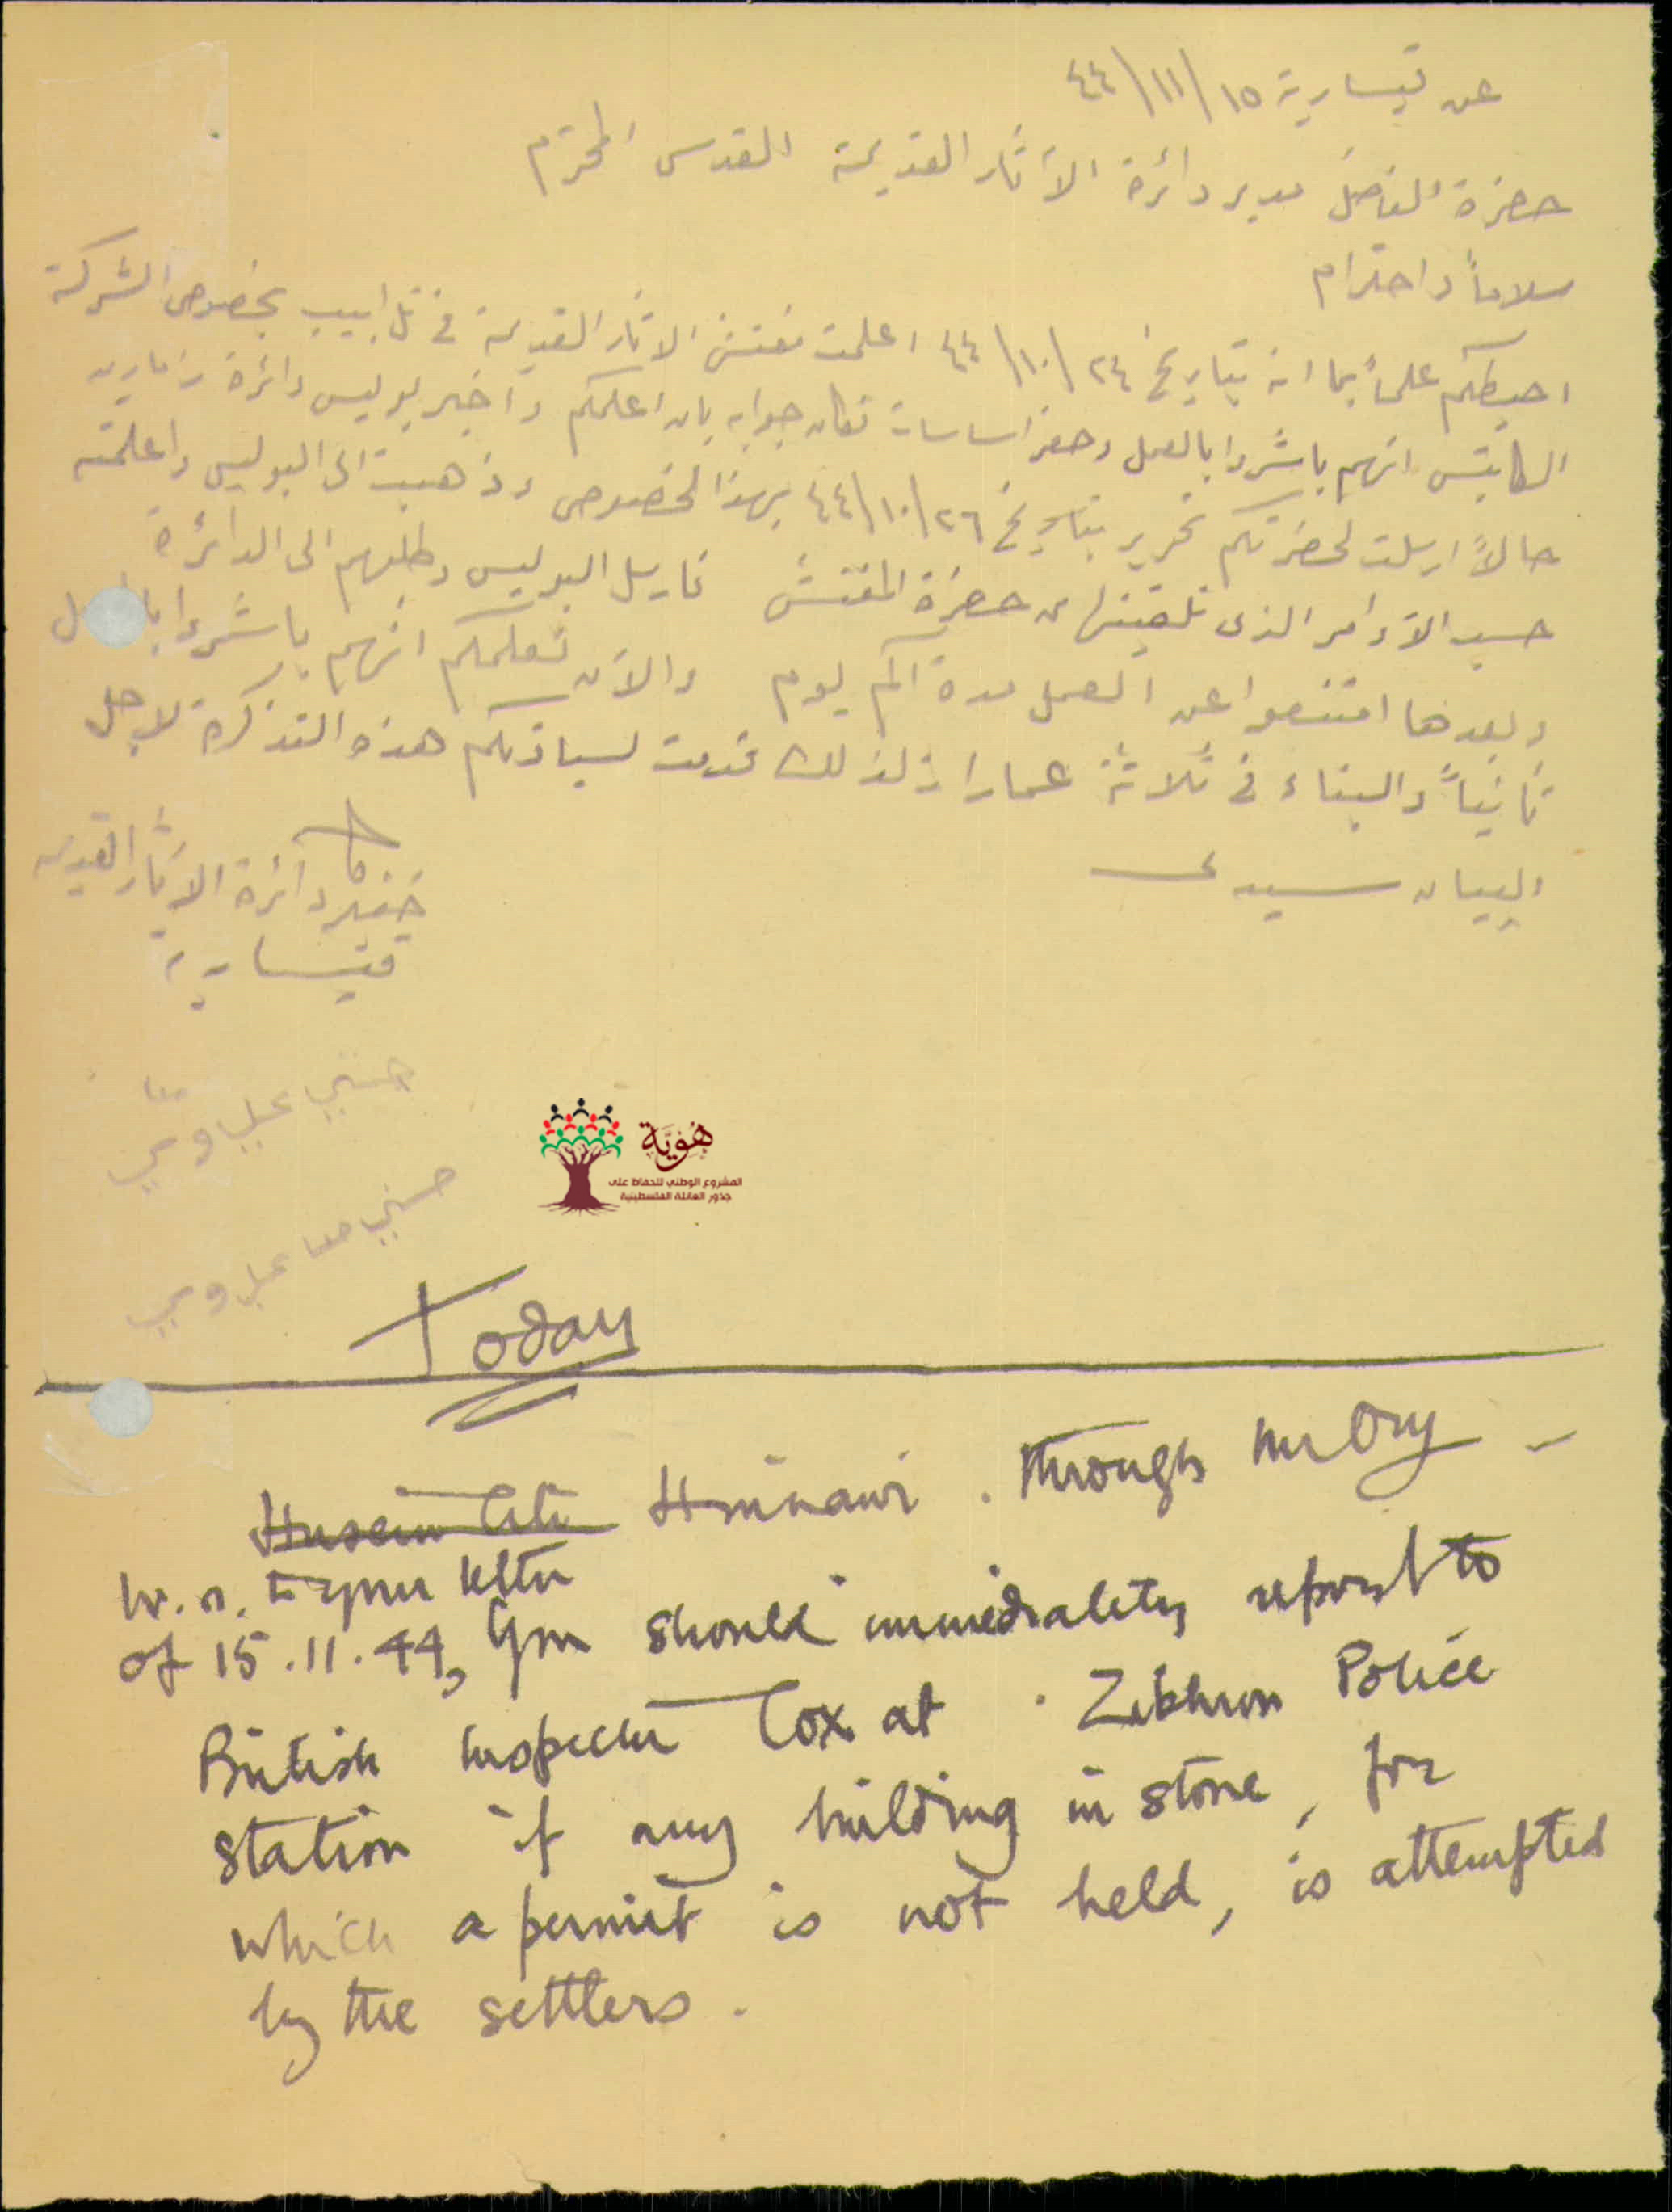 عن قيسارية ١٥/١١/٤٤
حضرة الفاضل مدير دائرة الآثار القديمة القدس المحترم
سلاماً واحترام
احيطكم علماً بما انه بتاريخ ٢٤/١٠/٤٤ اعلمت مفتش الاثار القديمة في تل ابيب بخصوص الشركة
انهم باشروا بالعمل وحفر اساسات فكان جوابه بان اعلمكم واخبر بوليس دائرة زمارين
حالاً ارسلت لحضرتكم تحرير بتاريخ ٢٦/١٠/٤٤ بهذا الخصوص وذهبت الى البوليس واعلمته
حسب الاوامر الذى تلقيتها من حضرة المفتش فارسل البوليس وطلبهم الى الدائرة
وبعدها امتنعوا عن العمل مدة كم يوم والآن نعلمكم انهم باشروا
ثانياً والبناء في ثلاثة عمارات لذلك قدمت لسيادتكم هذه التذكرة لاجل
البيان سيدى
خفير دائرة الاثار القديمه
قيسارية
حسني
حسني
هُوِيَّة
المشروع الوطني للحفاظ على
جذور العائلة الفلسطينية
Today
Husein Hinnawi . Through Mr Ory –
W. r. to your letter
of 15.11.44, you should immediately report to
British Inspector Cox at Zikhron Police
station if any building in stone, for
which a permit is not held, is attempted
by the settlers.